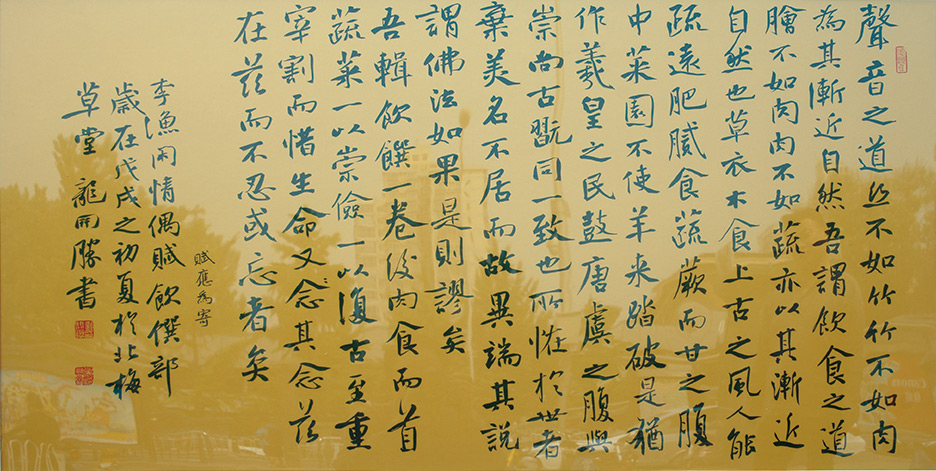 聲音之道丝不如竹竹不如肉
為其漸近自然吾謂飲食之道
膾不如肉肉不如蔬亦以其漸近
自然也草衣木食上古之風人能
疏遠肥膩食蔬蕨而甘之腹
中菜園不使羊来踏破是猶
作羲皇之民鼓唐虞之腹與
崇尚古翫同一致也所怪於世者
棄美名不居而故異端其說
謂佛法如果是則謬矣
吾輯飲饌一卷後肉食而首
蔬菜一以崇儉一以復古至重
宰割而惜生命又念其念茲
在茲而不忍或忘者矣
賦應為寄
李漁闲情偶賦飲饌部
歲在戊戌之初夏於北梅
草堂龍開勝書
Canon